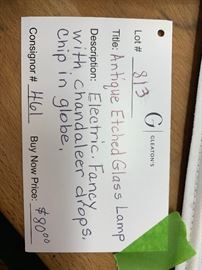 Lot # 813
G
GLEATON'S
Title: Antique Etched Glass Lamp
Description: Electric. Fancy
with chandaleer drops.
Chip in globe.
Consignor # 461 Buy Now Price: $80.00